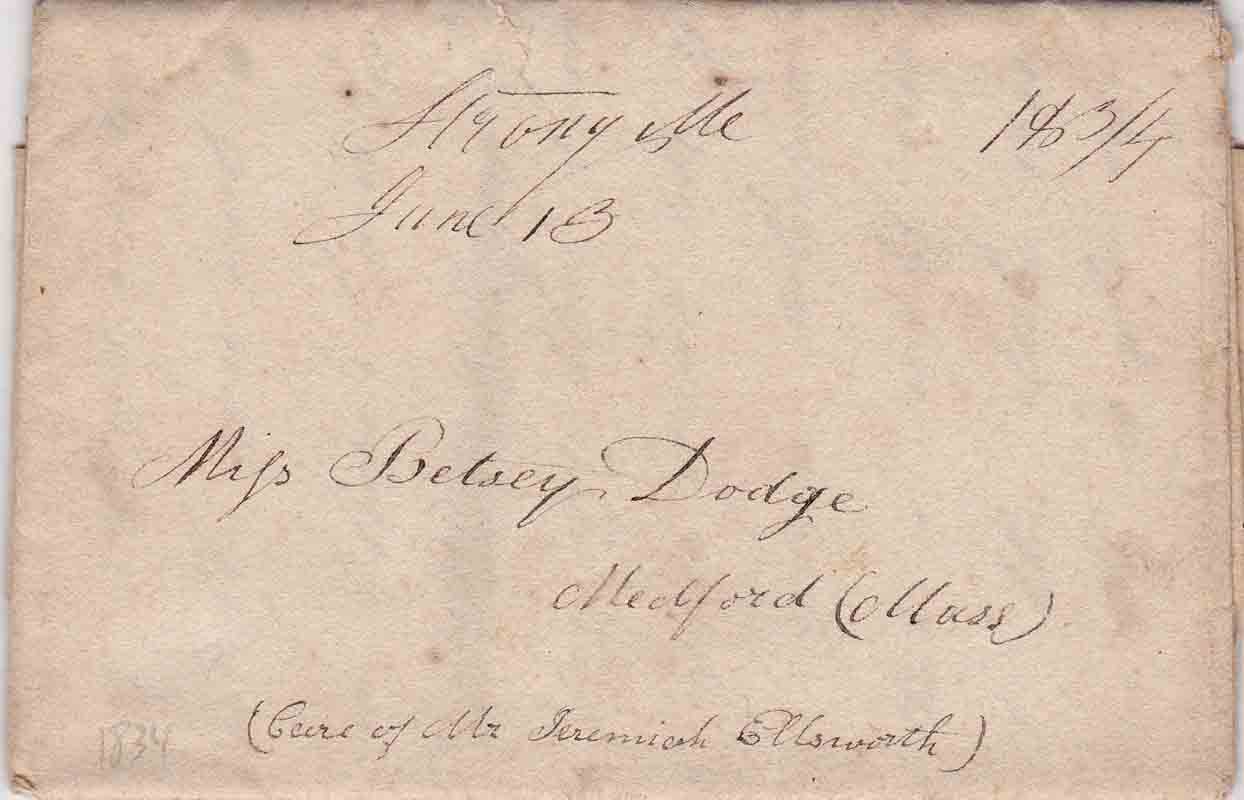 Strong Me 1834
June 13
Miss Betsey Dodge
Medford (Mass)
(Care of Mr Jeremiah Ellsworth)
1834